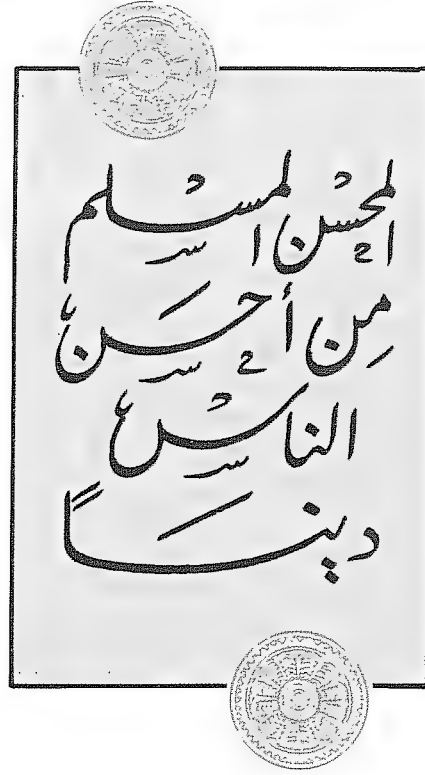 المحسن المسلم
مِن أحسَن
الناس
دينًا